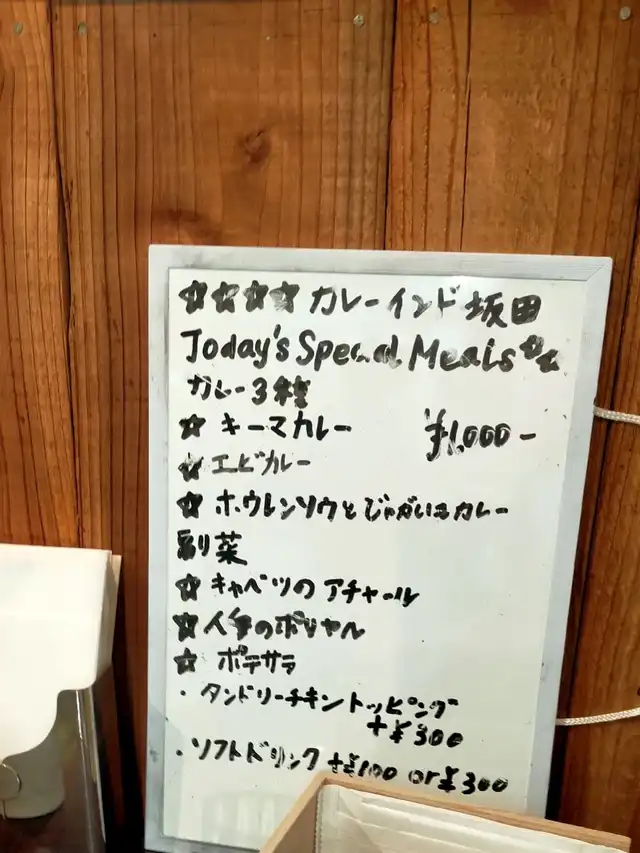 ☆☆☆☆ カレーインド坂田
Today's Special Meals☆☆
カレー3種
☆ キーマカレー ¥1,000-
☆ エビカレー
☆ ホウレンソウとじゃがいもカレー
副菜
☆ キャベツの アチャール
☆ 人参のポリヤル
☆ ポテサラ
・タンドリーチキントッピング
+¥300
・ソフトドリンク +¥100 or ¥300